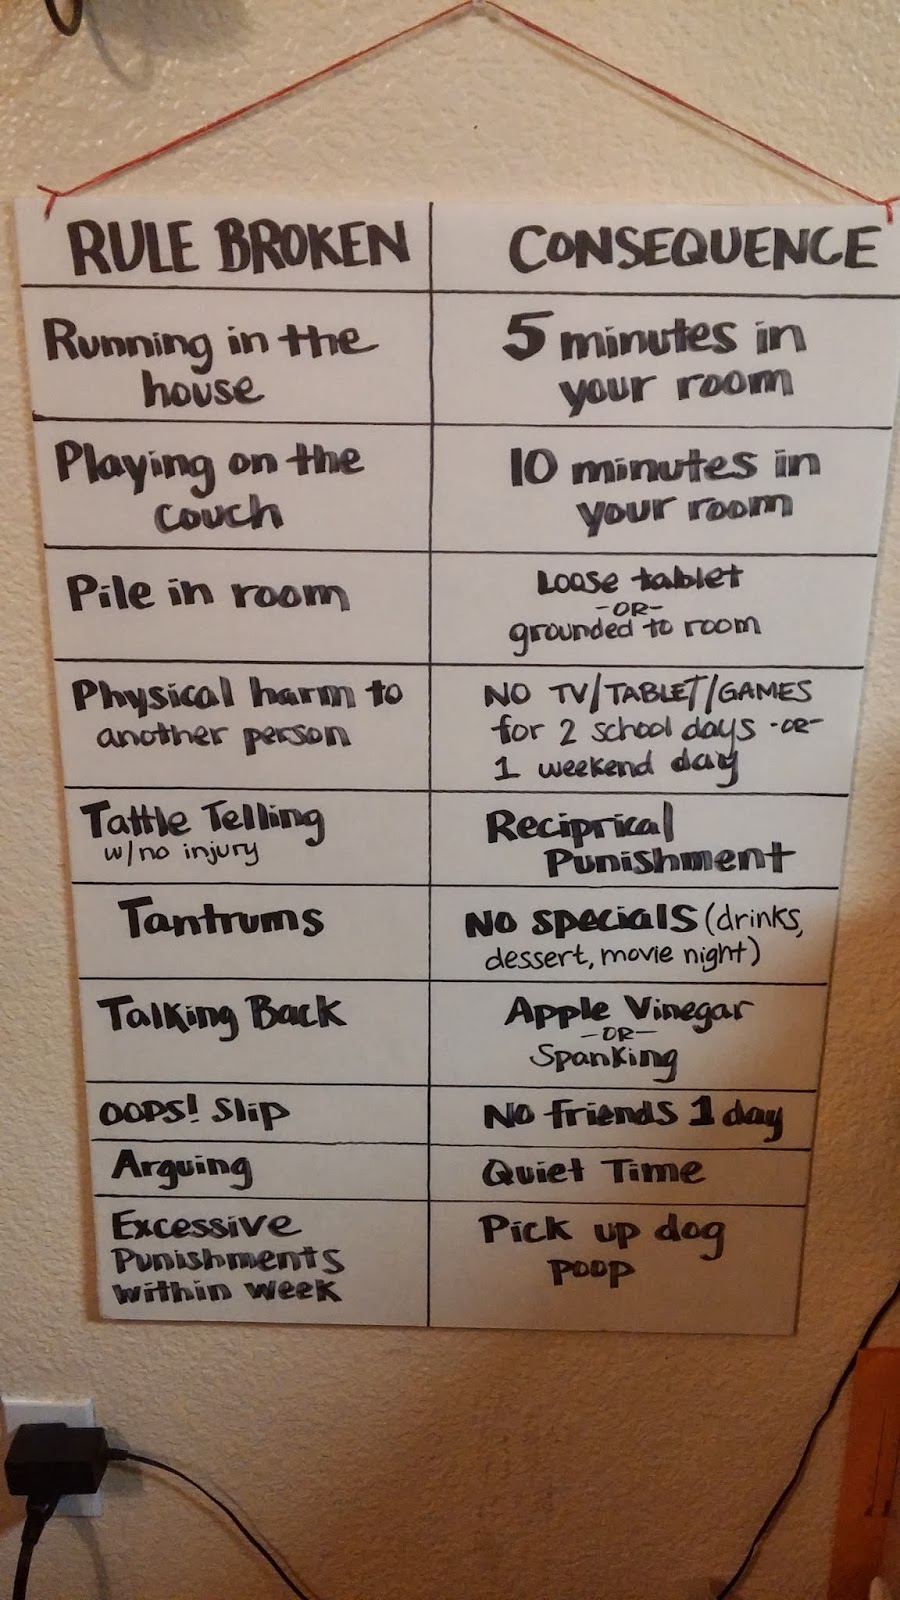 RULE BROKEN
CONSEQUENCE
Running in the
house
5 minutes in
your room
Playing on the
couch
10 minutes in
your room
Pile in room
Loose tablet
-OR-
grounded to room
Physical harm to
another person
NO TV/TABLET/GAMES
for 2 school days -OR-
1 weekend day
Tattle Telling
w/no injury
Reciprical
Punishment
Tantrums
No specials (drinks,
dessert, movie night)
Talking Back
Apple Vinegar
-OR-
Spanking
OOPS! Slip
No friends 1 day
Arguing
Quiet Time
Excessive
Punishments
within week
Pick up dog
poop